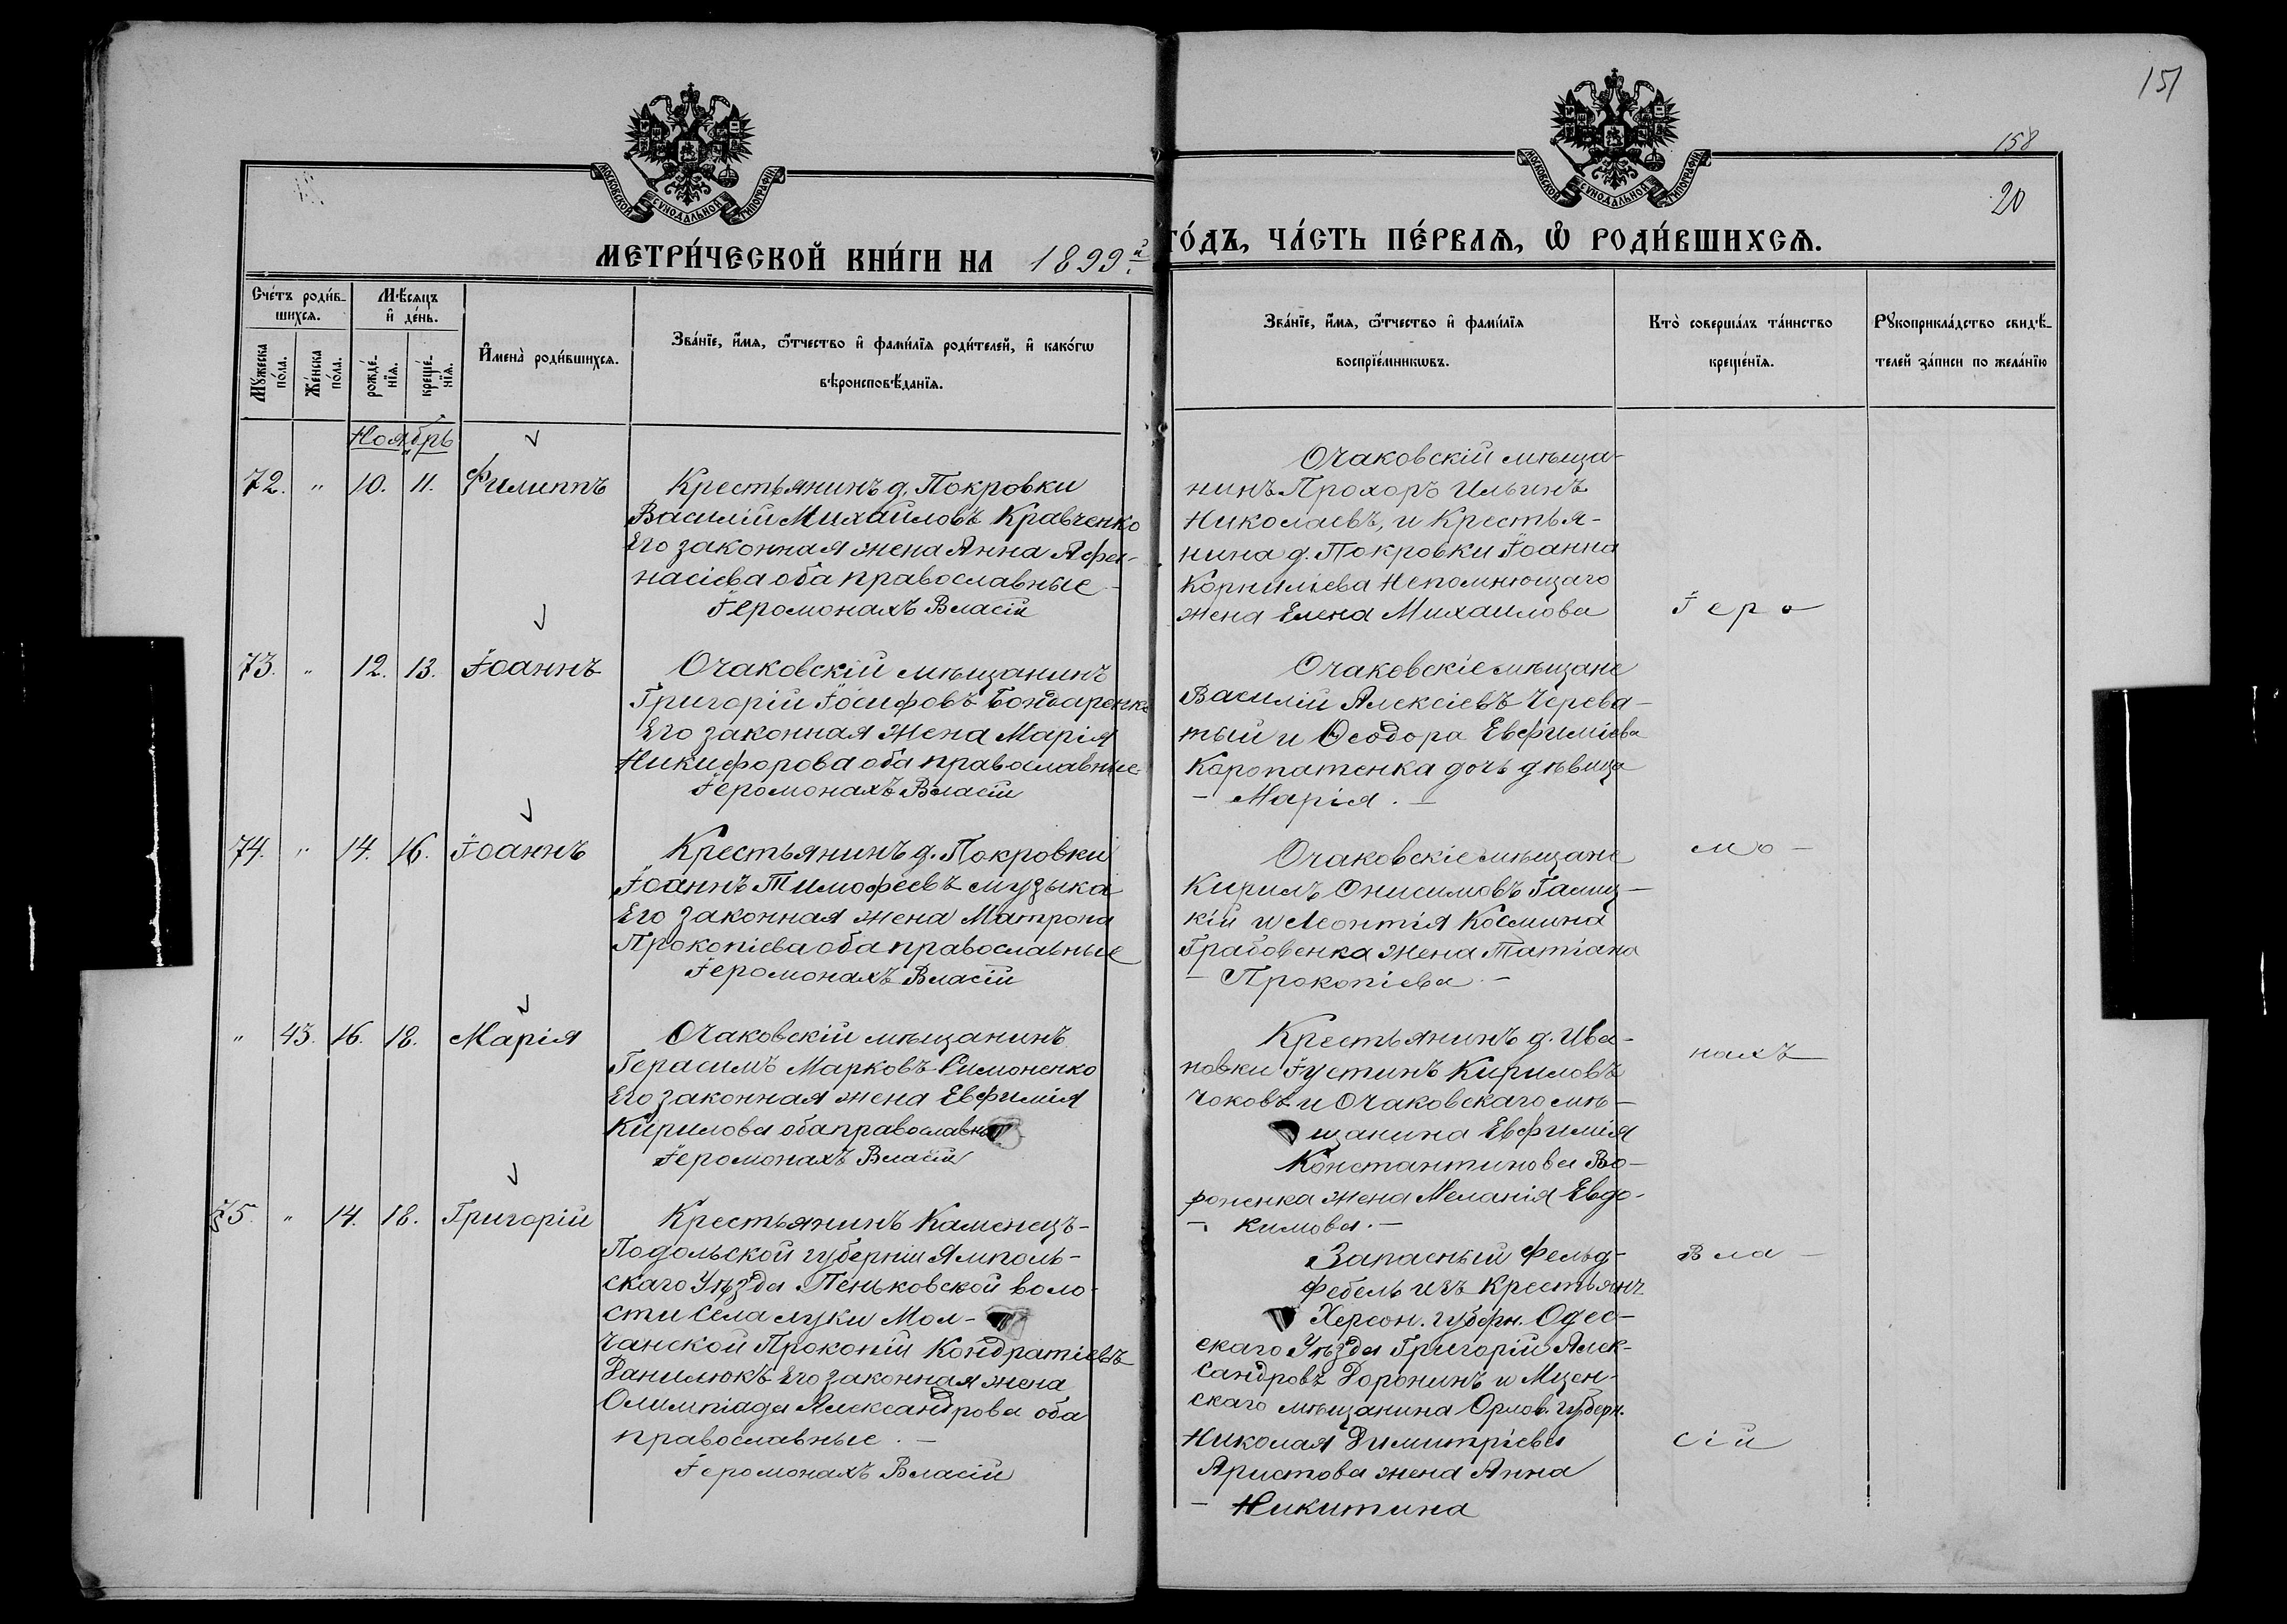 151
158
20
МОСКОВСКОЙ СѴНОДАЛЬНОЙ ТИПОГРАФІИ
МОСКОВСКОЙ СѴНОДАЛЬНОЙ ТИПОГРАФІИ
МЕТРИ́ЧЕСКОЙ КНИ́ГИ НА 1899й
ГО́ДЪ, ЧА́СТЬ ПЕ́РВАѦ, Ѽ РОДИ́ВШИХСѦ.
Сче́тъ роди́в-
шихсѧ.
Мѣ́сяцъ
и҆ де́нь.
Мꙋ́жеска по́ла.
Же́нска по́ла.
рожде́-
нїѧ.
креще́-
нїѧ.
И҆мена̀ роди́вшихсѧ.
Зва́нїе, и҆́мѧ, ѻ҆́тчество и҆ фами́лїѧ роди́телей, и҆ како́гѡ
вѣроисповѣ́данїѧ.
Зва́нїе, и҆́мѧ, ѻ҆́тчество и҆ фами́лїѧ
воспрїе́мникѡвъ.
Кто̀ соверша́лъ та́инство
креще́нїѧ.
Рꙋкоприкла́дство свидѣ́-
телей за́писи по жела́нїю
Ноябрь
72. " 10. 11. Филиппъ
Крестьянинъ д. Покровки
Василій Михайловъ Кравченко
Его законная жена Анна Афа-
насіева оба православные
Іеромонахъ Власій
Очаковскій мѣща-
нинъ Прохоръ Ильинъ
Николаевъ, и Крестья-
нина д. Покровки Іоанна
Корниліева Непомнющаго
жена Елена Михаилова
Іеро
73. " 12. 13. Іоаннъ
Очаковскій мѣщанинъ
Григорій Іосифовъ Бондаренко
Его законная жена Марія
Никифорова оба православные
Іеромонахъ Власій
Очаковскіе мѣщане
Василій Алексіевъ Черева-
тый и Ѳеодора Евфиміева
Каропатенка дочь дѣвица
- Марія. -
74. " 14. 16. Іоаннъ
Крестьянинъ д. Покровки
Іоаннъ Тимофеевъ музыка
Его законная жена Матрона
Прокопіева оба православные
Іеромонахъ Власій
Очаковскіе мѣщане
Кирилъ Онисимовъ Галиц-
кій и Леонтія Космина
Грабовенка жена Татіана
- Прокопіева -
мо -
" 43. 16. 18. Марія
Очаковскій мѣщанинъ
Герасимъ Марковъ Симоненко
Его законная жена Евфимія
Кирилова оба православны
Іеромонахъ Власій
Крестьянинъ д. Ива-
новки Іустинъ Кириловъ
Чоковъ и Очаковскаго мѣ-
щанина Евфимія
Константинова Во-
роненка жена Меланія Евдо-
- кимова. -
нахъ
75. " 14. 18. Григорій
Крестьянинъ Каменецъ-
Подольской губерніи Ямполь-
скаго Уѣзда Пеньковской воло-
сти села луки Мол-
чанской Прокопій Кондратіевъ
Данилюкъ Его законная жена
Олимпіада Александрова оба
православные. -
Іеромонахъ Власій
Запасный Фельд-
фебель изъ Крестьянъ
Херсон. губерн. Одес-
скаго Уѣзда Григорій Алек-
сандровъ Доронинъ и Мцен-
скаго мѣщанина Орлов. губерн.
Николая Димитріева
Аристова жена Анна
- Никитина
Вла -
сій